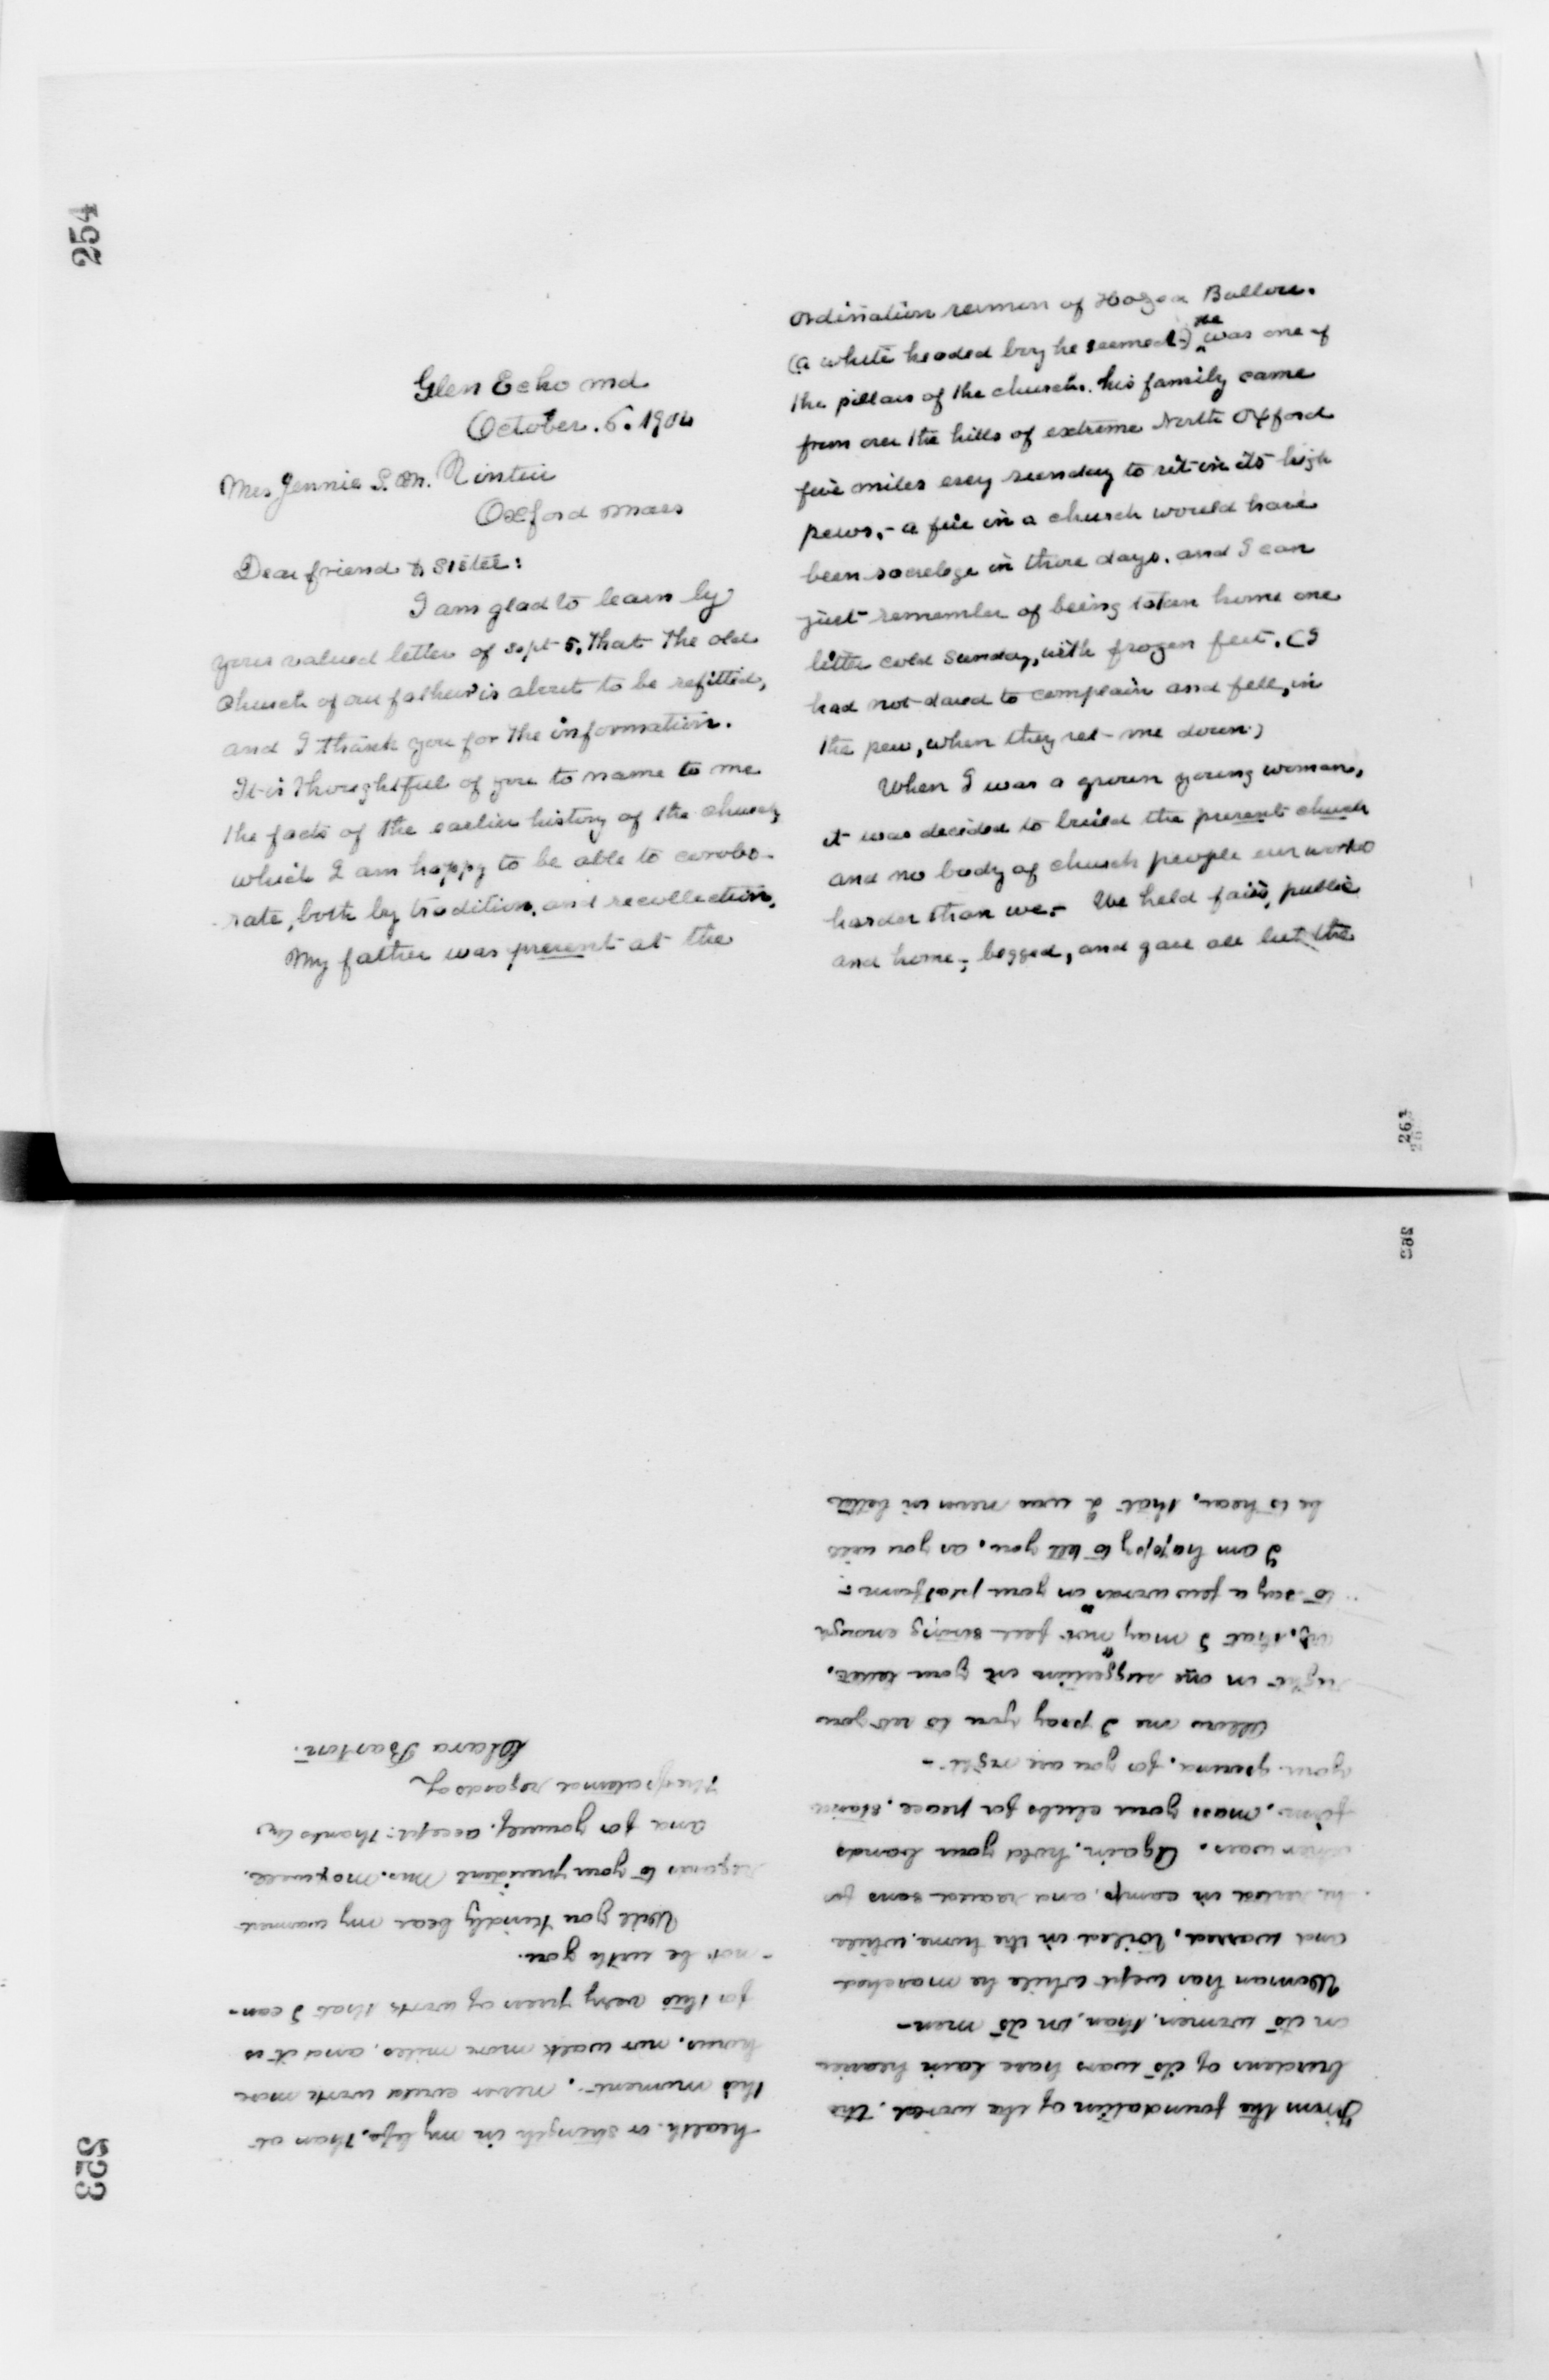 254
Glen Echo Md
October. 6. 1904
Mrs Jennie S. M.
Oxford Mass
Dear friend & Sister:
I am glad to learn by
your valued letter of Sept 5, that the old
church of our fathers is about to be refitted,
and I thank you for the information.
It is thoughtful of you to name to me
the facts of the earlier history of the church,
which I am happy to be able to corrobo-
rate, both by tradition, and recollection.
My father was present at the
ordination sermon of Hosea Ballou.
(a white headed boy he seemed-) He was one of
the pillars of the church. his family came
from over the hills of extreme North Oxford
five miles every sunday to sit in its high
pews,- a fire in a church would have
been sacrelege in those days. and I can
just remember of being taken home one
bitter cold Sunday, with frozen feet. (I
had not dared to complain and fell, in
the pew, when they set me down.)
When I was a grown young woman,
it was decided to build the present church
and no body of church people ever worked
harder than we.- We held fairs, public
and home,- begged, and gave all but the
263
262
From the foundation of the world, the
burdens of its wars have lain heavier
on its women, than, on its men-
Woman has wept while he marched
and warred, toiled in the home, while
he rested in camp, and reared sons for
other wars. Again, hold your bands
firm, mass your clubs for peace, stand
your ground, for you are right.-
Allow me I pray you to set you
right in one suggestion in your letter,
viz, that I may "not feel strong enough
to say a few words on your platform"-
I am happy to tell you, as you will
be to hear, that I was never in better
health or strength in my life, than at
this moment-, never could work more
hours, nor walk more miles, and it is
for this very press of work that I can-
not be with you.
Will you kindly bear my warmest
regards to your president Mrs.
and for yourself, accept thanks &
the regards of
Clara Barton.
253